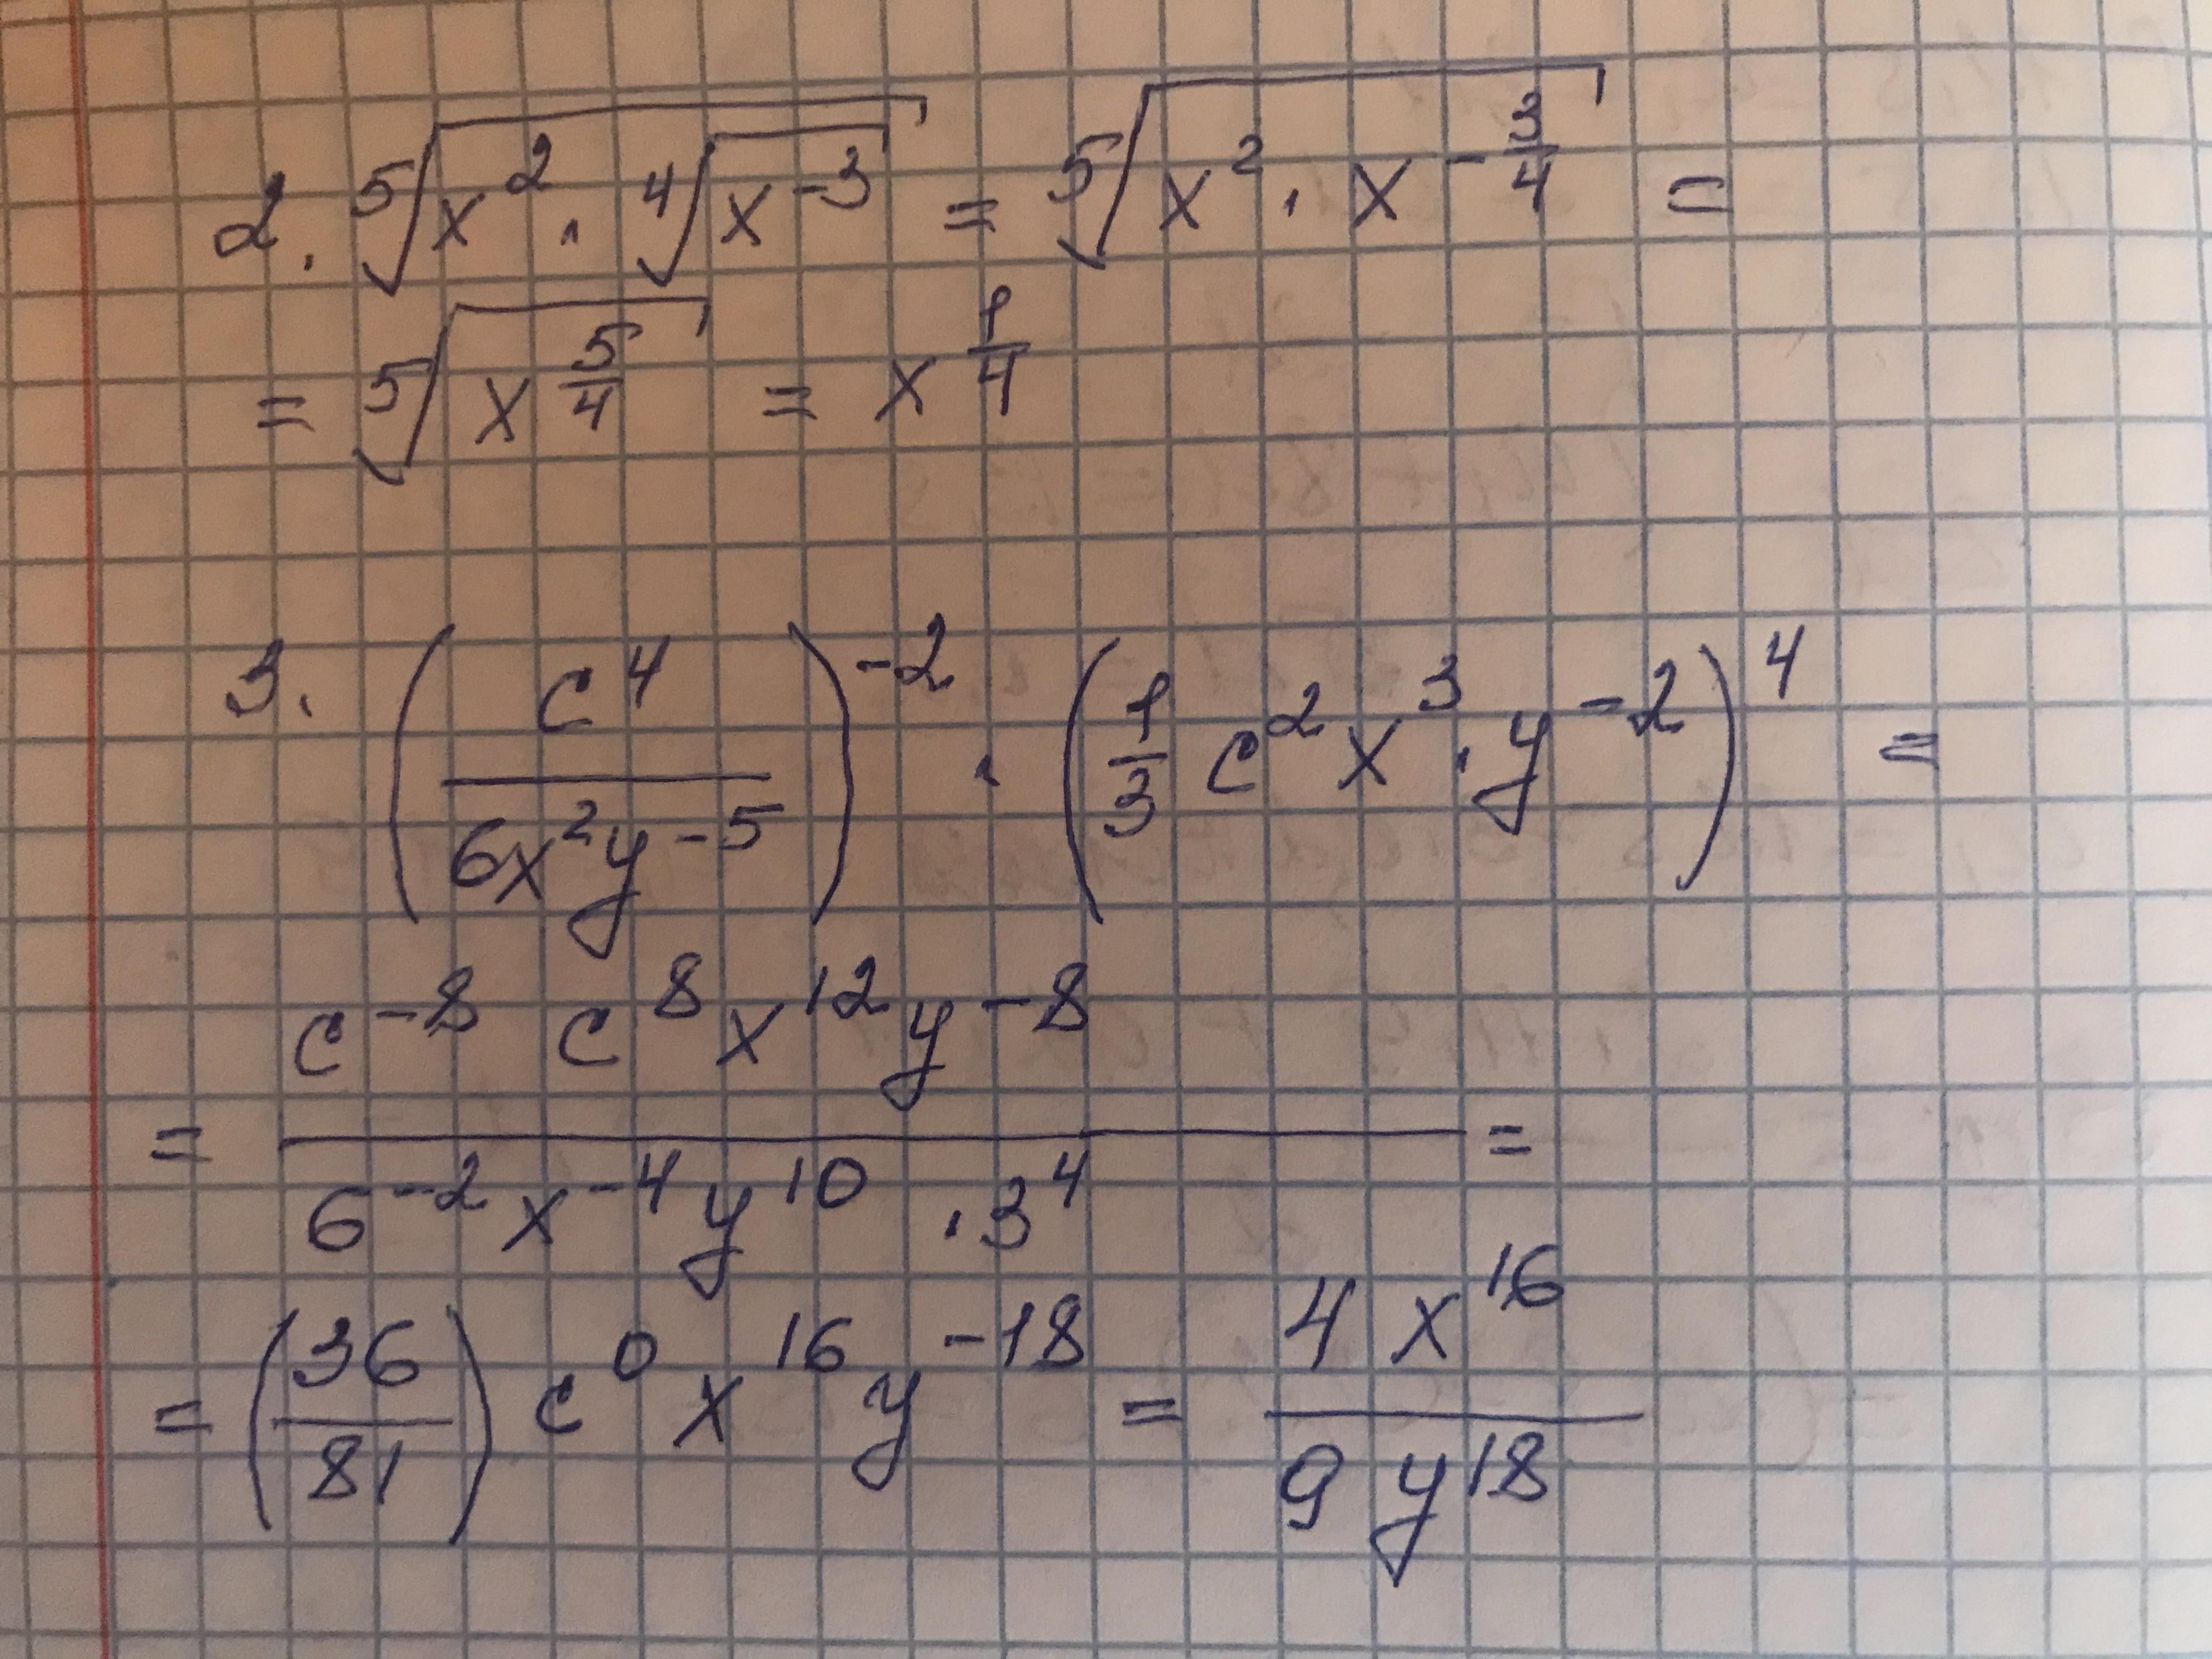 2. ⁵√(x² · ⁴√(x⁻³)) = ⁵√(x² · x^(-3/4)) =
= ⁵√(x^(5/4)) = x^(1/4)
3. (c⁴/(6x²y⁻⁵))⁻² · (1/3 c²x³·y⁻²)⁴ =
= (c⁻⁸ c⁸x¹²y⁻⁸)/(6⁻²x⁻⁴y¹⁰ · 3⁴) =
= (36/81) c⁰x¹⁶y⁻¹⁸ = (4x¹⁶)/(9y¹⁸)